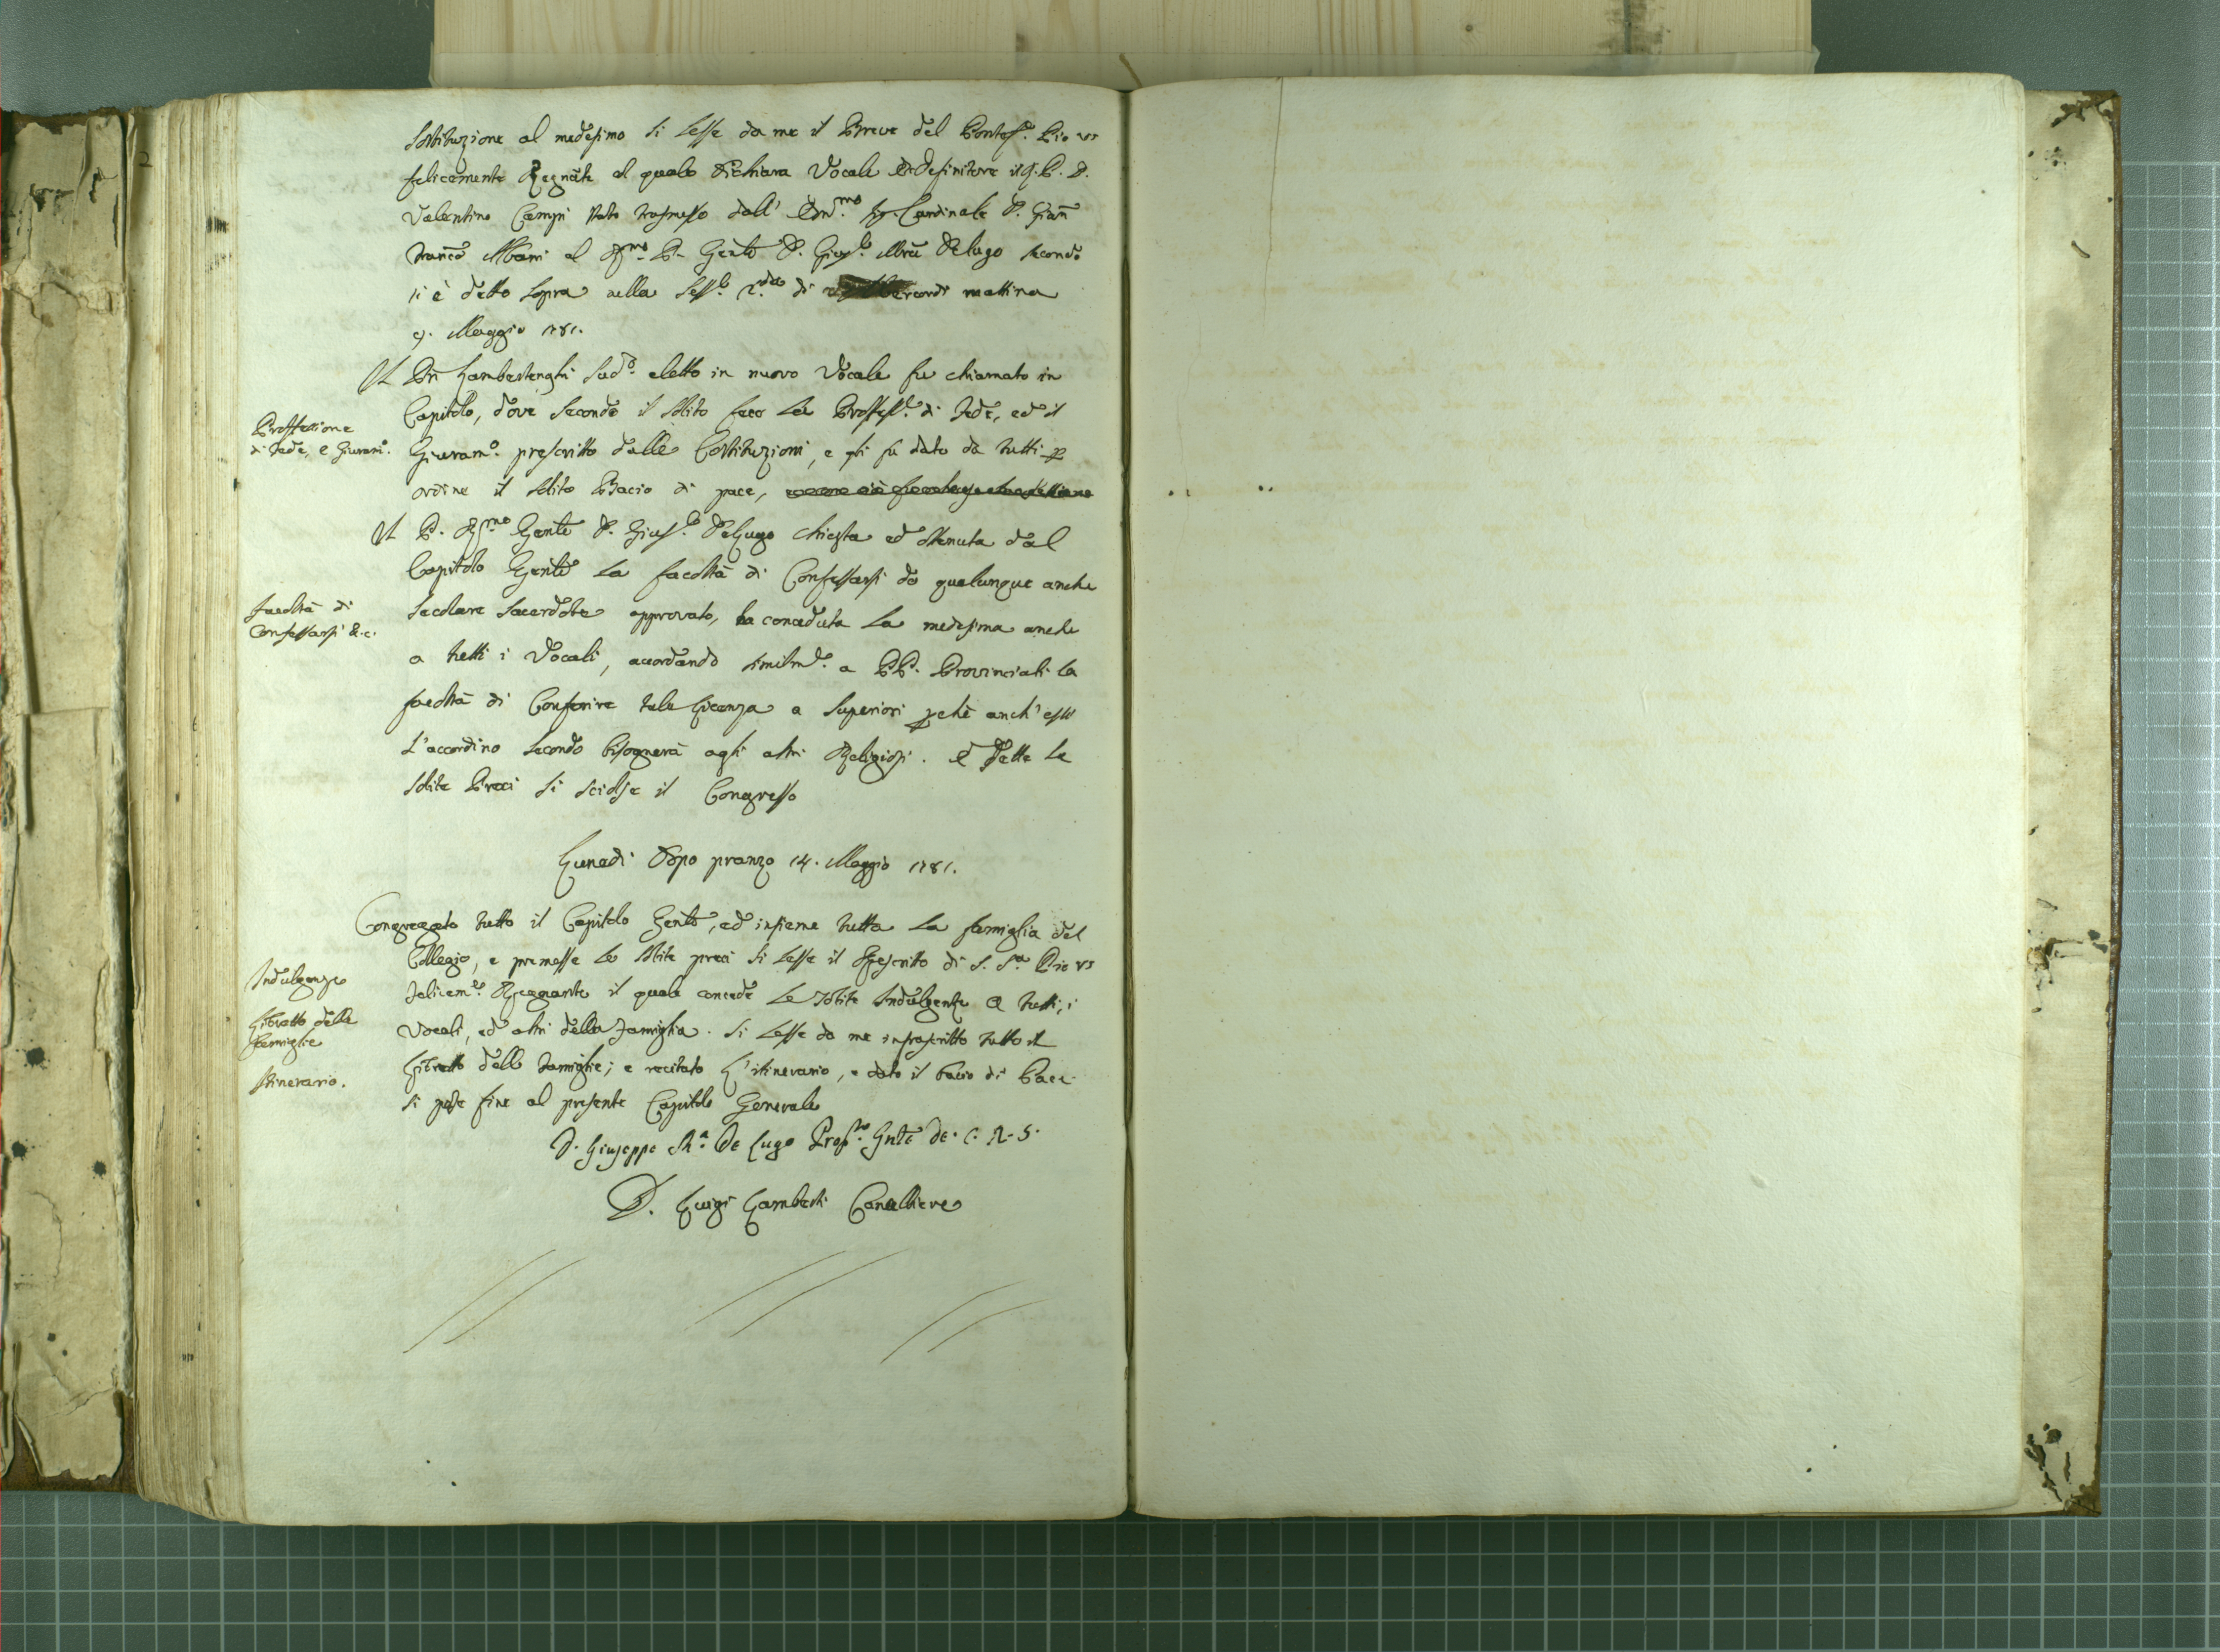 Sostituzione al medesimo si lesse da me il Breve del Pontef.e Pio VI
felicemente Regnãte al quale dichiara Vocale e Definitore il P. D.
Valentino Campi stato trasmesso dall' Em.mo Sig. Cardinale D. Giañ
Franco Albani al R.mo P. Genle D. Gius.e Mria DeLugo secondo
si è detto sopra nella Sess.e 2.da di mercordi mattina
9. Maggio 1781.
Il Pñ Lambertenghi Sud.o eletto in nuovo Vocale fu chiamato in
Capitolo, dove secondo il solito fece la Professe. di Fede, ed il
Proffessione
di Fede, e Giuram.o
Giuram.o prescritto dalle Costituzioni, e gli fu dato da tutti p
ordine il solito Bacio di pace,
Il P. R.mo Genle D. Gius.e DeLugo chiesta ed ottenuta dal
Capitolo Genle la facoltà di Confessarsi da qualunque anche
Facoltà di
Confessarsi &.c.
secolare sacerdote approvato, ha conceduta la medesima anche
a tutti i Vocali, accordando similmte. a PP. Provinciali la
facoltà di Conferire tale Licenza a Superiori pchè anch' essi
l'accordino secondo bisognerà agli altri Religiosi. E dette le
solite Preci si sciolse il Congresso
Lunedì Dopo pranzo 14. Maggio 1781.
Congregato tutto il Capitolo Genle, ed insieme tutta la famiglia del
Collegio, e premesse le solite preci si lesse il Rescritto di S. S.a Pio VI
Indulgenze
felicem.te Regnante il quale concede le solite Indulgenze a tutti i
Libretto delle
Famiglie
Vocali, ed altri della Famiglia. Si lesse da me infrascritto tutto il
Libretto delle Famiglie; e recitato L'itinerario, e dato il bacio di Pace
Itinerario.
si pose fine al presente Capitolo Generale
D. Giuseppe M.a De Lugo Prep.to Gnle De. C. R. S.
D. Luigi Lamberti Cancelliere